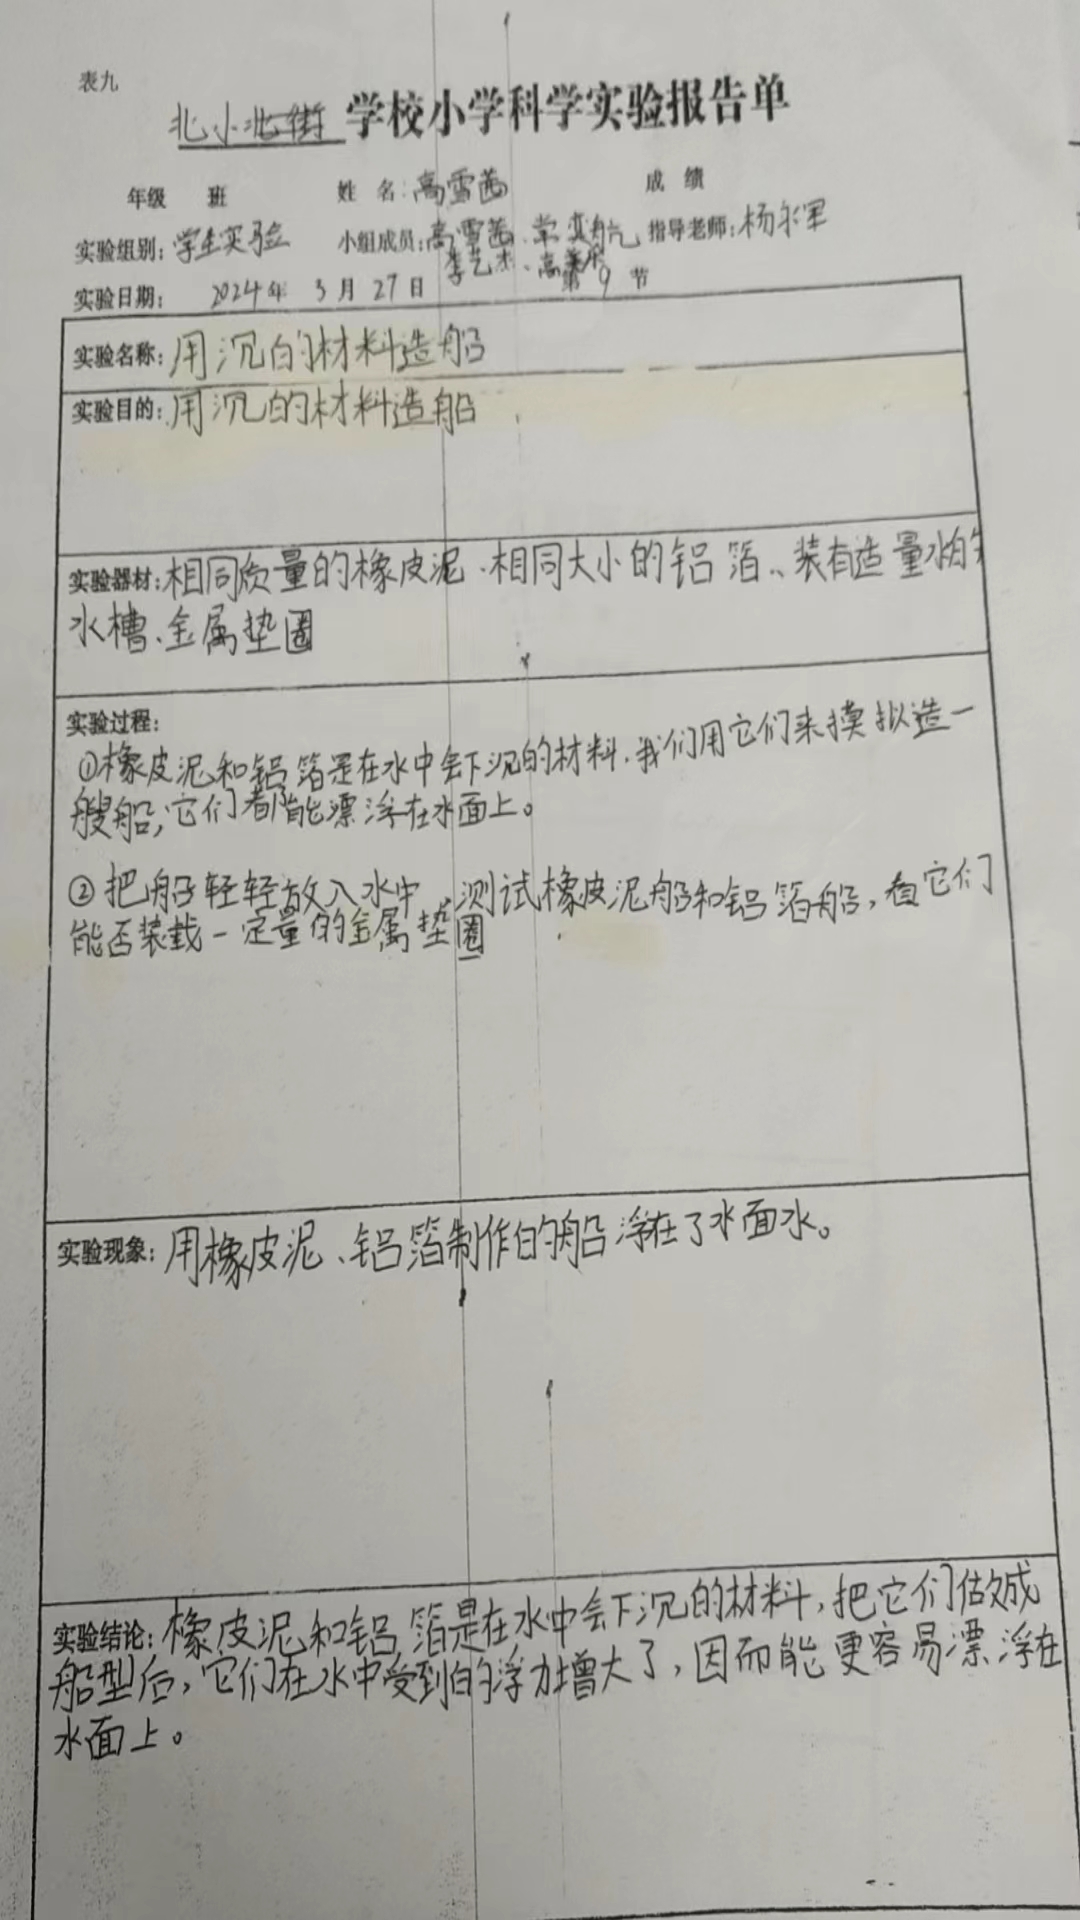 表九
北小北街学校小学科学实验报告单
年级 班 姓名:高雪茜 成绩
实验组别:学生实验 小组成员:高雪茜、常奕航 指导老师:杨
李艺杰、高
实验日期: 2024年 3月 27日 第9节
实验名称:用沉的材料造船
实验目的:用沉的材料造船
实验器材:相同质量的橡皮泥、相同大小的铝箔、装有造量水的
水槽、金属垫圈
实验过程:
①橡皮泥和铝箔是在水中会下沉的材料,我们用它们来摸拟造一
艘船,它们都能漂浮在水面上。
②把船轻轻放入水中,测试橡皮泥船和铝箔船,看它们
能否装载一定量的金属垫圈
实验现象:用橡皮泥、铝箔制作的船浮在了水面水。
实验结论:橡皮泥和铝箔是在水中会下沉的材料,把它们做成
船型后,它们在水中受到的浮力增大了,因而能更容易漂浮在
水面上。